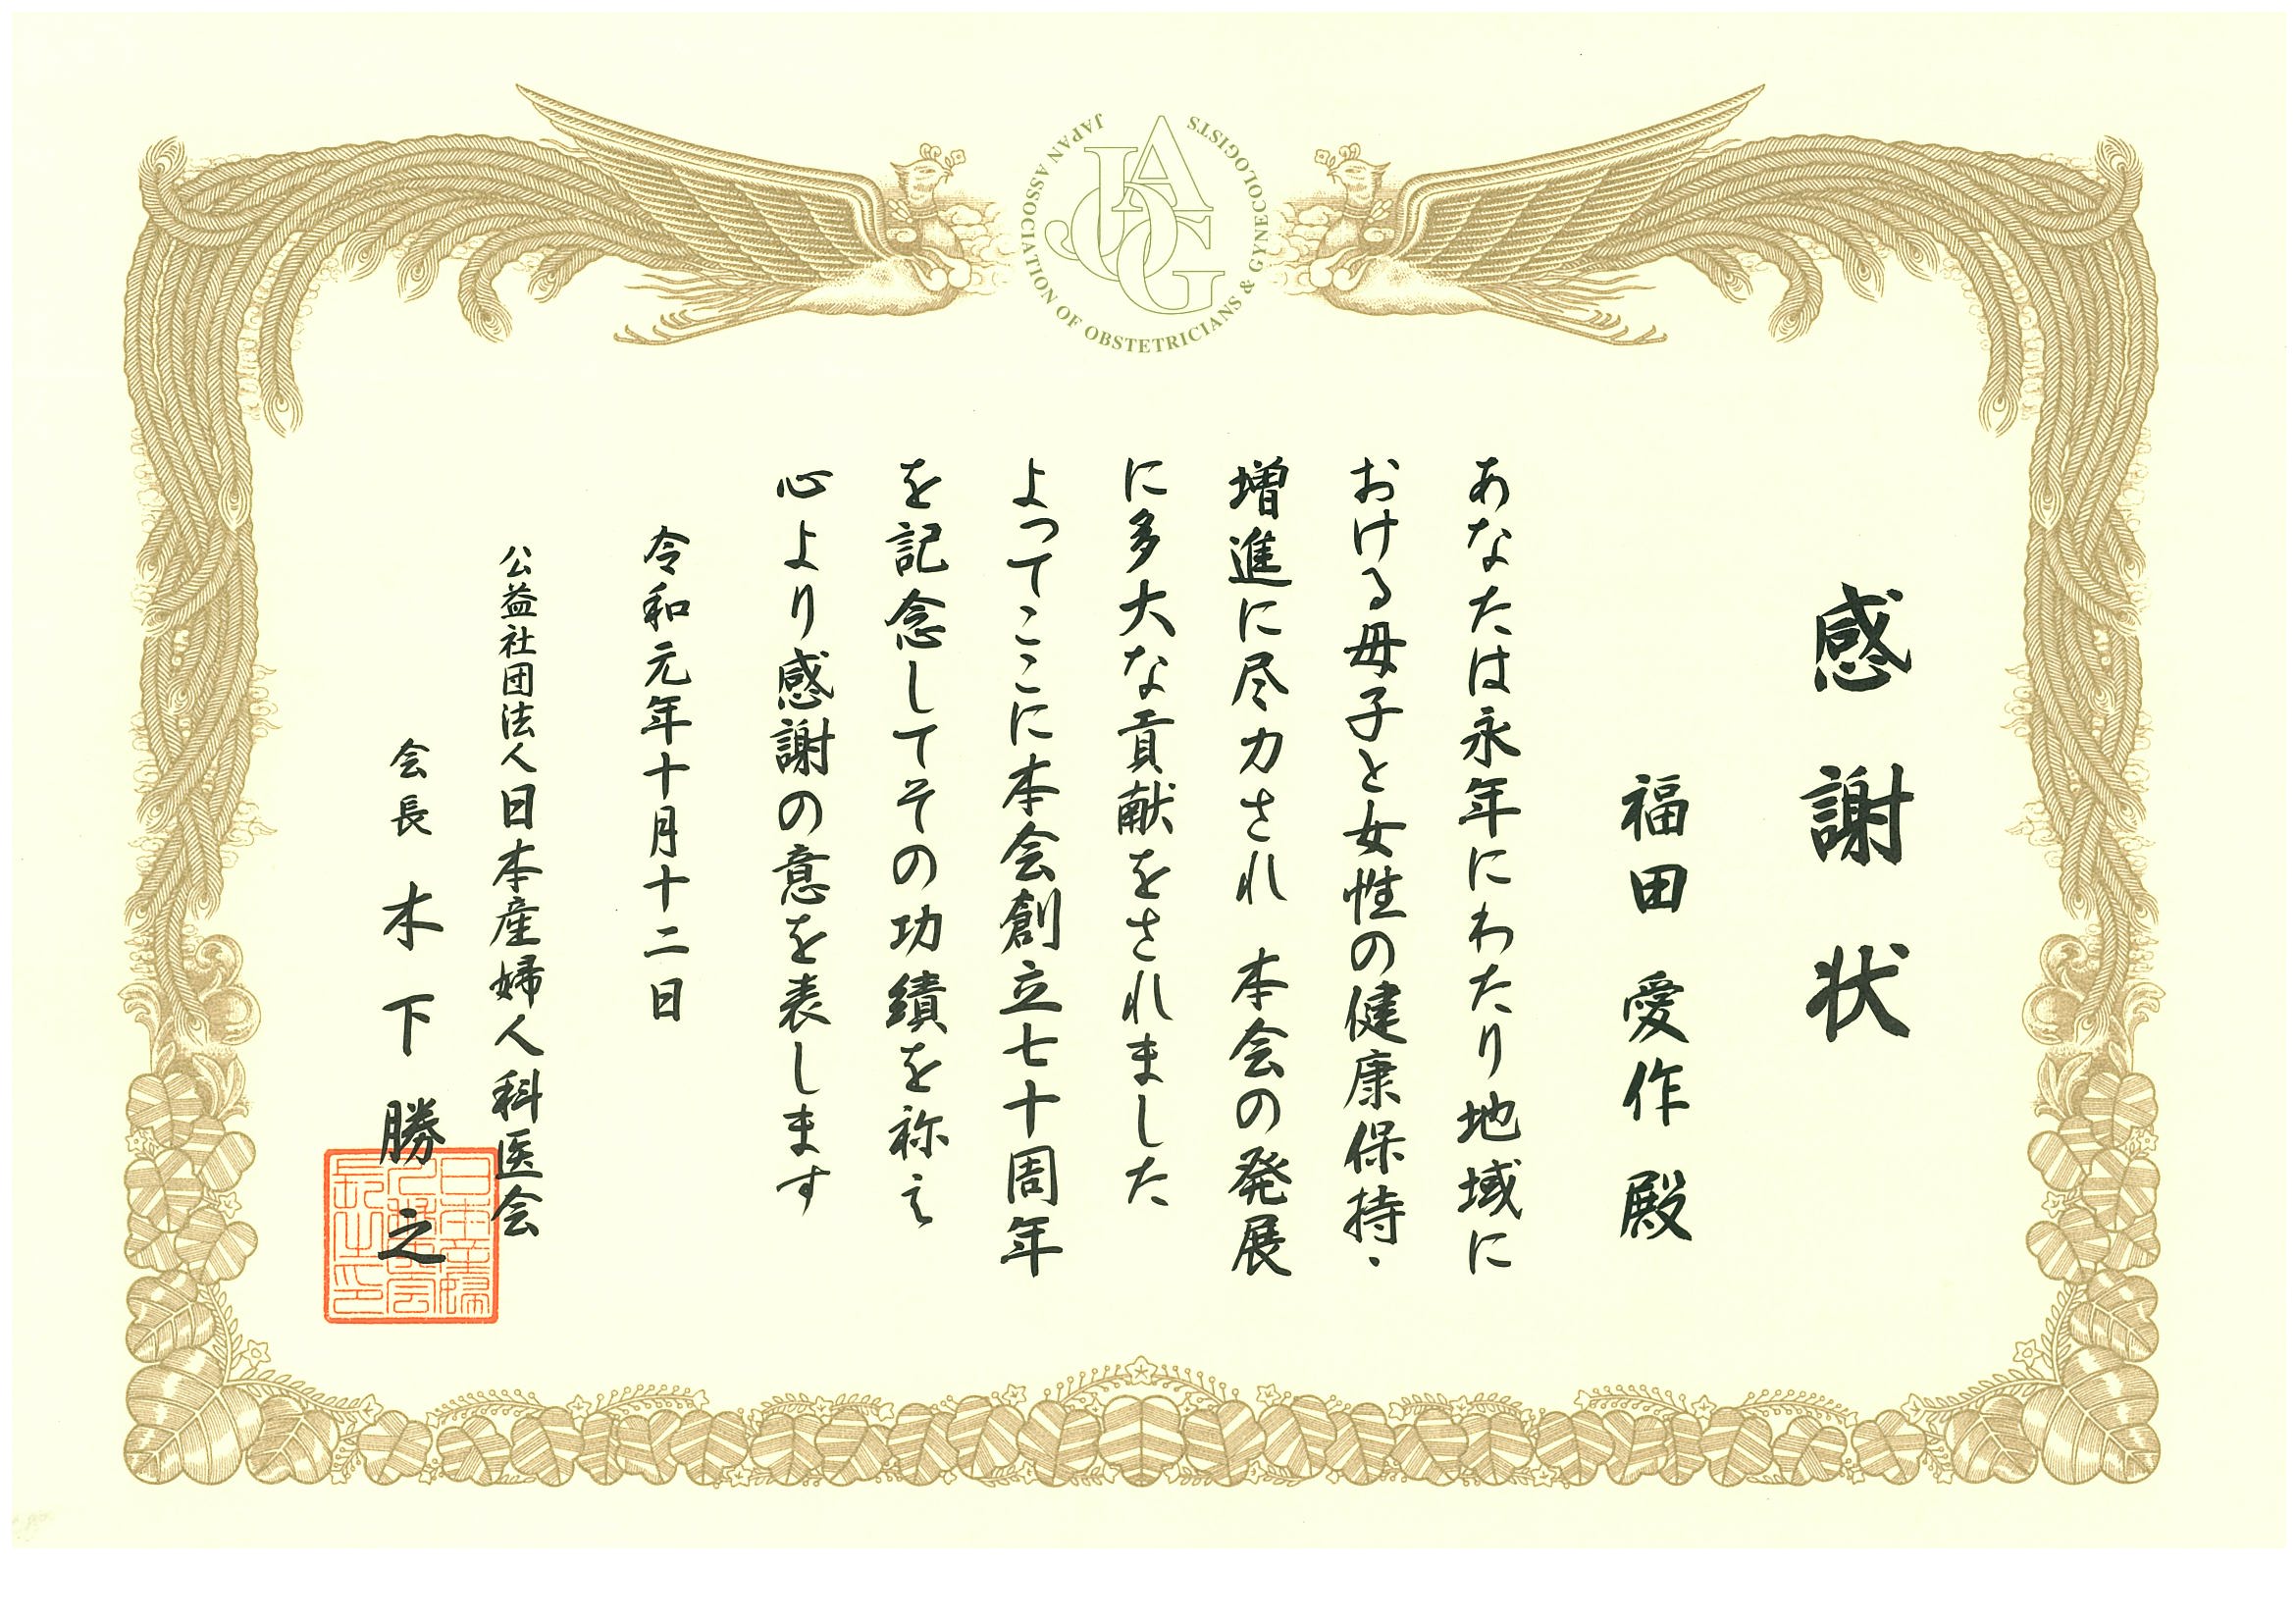 JAPAN ASSOCIATION OF OBSTETRICIANS & GYNECOLOGISTS
JAOG
感謝状
福田愛作殿
あなたは永年にわたり地域に
おける母子と女性の健康保持・
増進に尽力され 本会の発展
に多大な貢献をされました
よってここに本会創立七十周年
を記念してその功績を称え
心より感謝の意を表します
令和元年十月十二日
公益社団法人日本産婦人科医会
会長 木下勝之